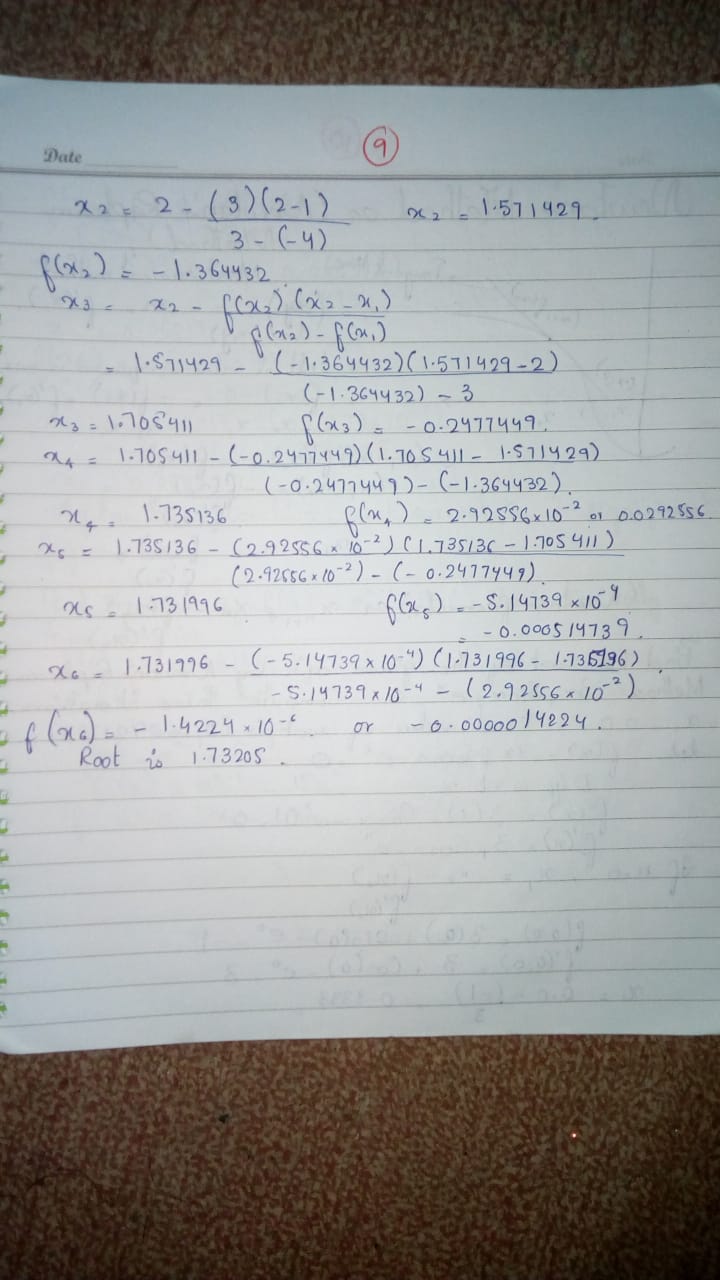 9
Date
x2 = 2 - (3)(2-1) / 3 - (-4)    x2 = 1.571429.
f(x2) = -1.364432.
x3 = x2 - f(x2)(x2 - x1) / f(x2) - f(x1)
= 1.571429 - (-1.364432)(1.571429-2) / (-1.364432) - 3
x3 = 1.705411    f(x3) = -0.2477449.
x4 = 1.705411 - (-0.2477449)(1.705411 - 1.571429) / (-0.2477449) - (-1.364432).
x4 = 1.735136    f(x4) = 2.92556x10^-2 or 0.0292556
x5 = 1.735136 - (2.92556 x 10^-2)(1.735136 - 1.705411) / (2.92556x10^-2) - (-0.2477449)
x5 = 1.731996    f(x5) = -5.14739 x 10^-4
= -0.000514739.
x6 = 1.731996 - (-5.14739 x 10^-4)(1.731996 - 1.735196) / -5.14739x10^-4 - (2.92556x10^-2)
f(x6) = -1.4224x10^-6. or -0.0000014224.
Root is 1.73205.